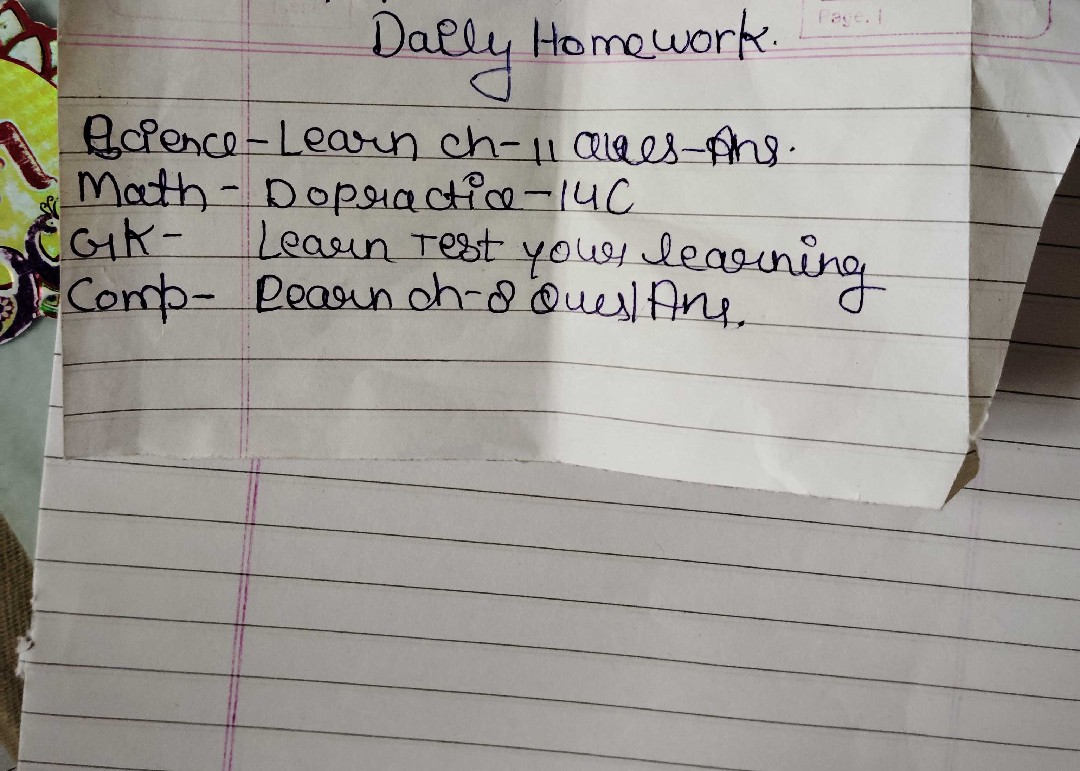 Page. 1
Daily Homework.
Science - Learn ch-11 Ques-Ans.
Math - Do practice - 14C
GK - Learn Test your learning
Comp - Learn ch-8 Ques/Ans.